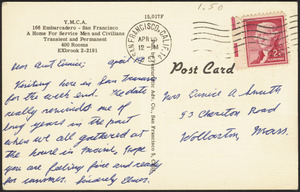 Y.M.C.A.
166 Embarcadero - San Francisco
A Home For Service Men and Civilians
Transient and Permanent
400 Rooms
EXbrook 2-2191
15,007F
1.50
SAN FRANCISCO, CALIF.
APR
12 - PM
2¢
Post Card
Dear Aunt Eunice, April 19
Visiting here in San Francisco
for the week end. The date
really reminded me of
long years in the past
when we all gathered at
the house in Maine. Hope
you are feeling fine and ready
for summer. Sincerely
Miss Eunice A Smith
93 Cheriton Road
Wollaston, Mass.